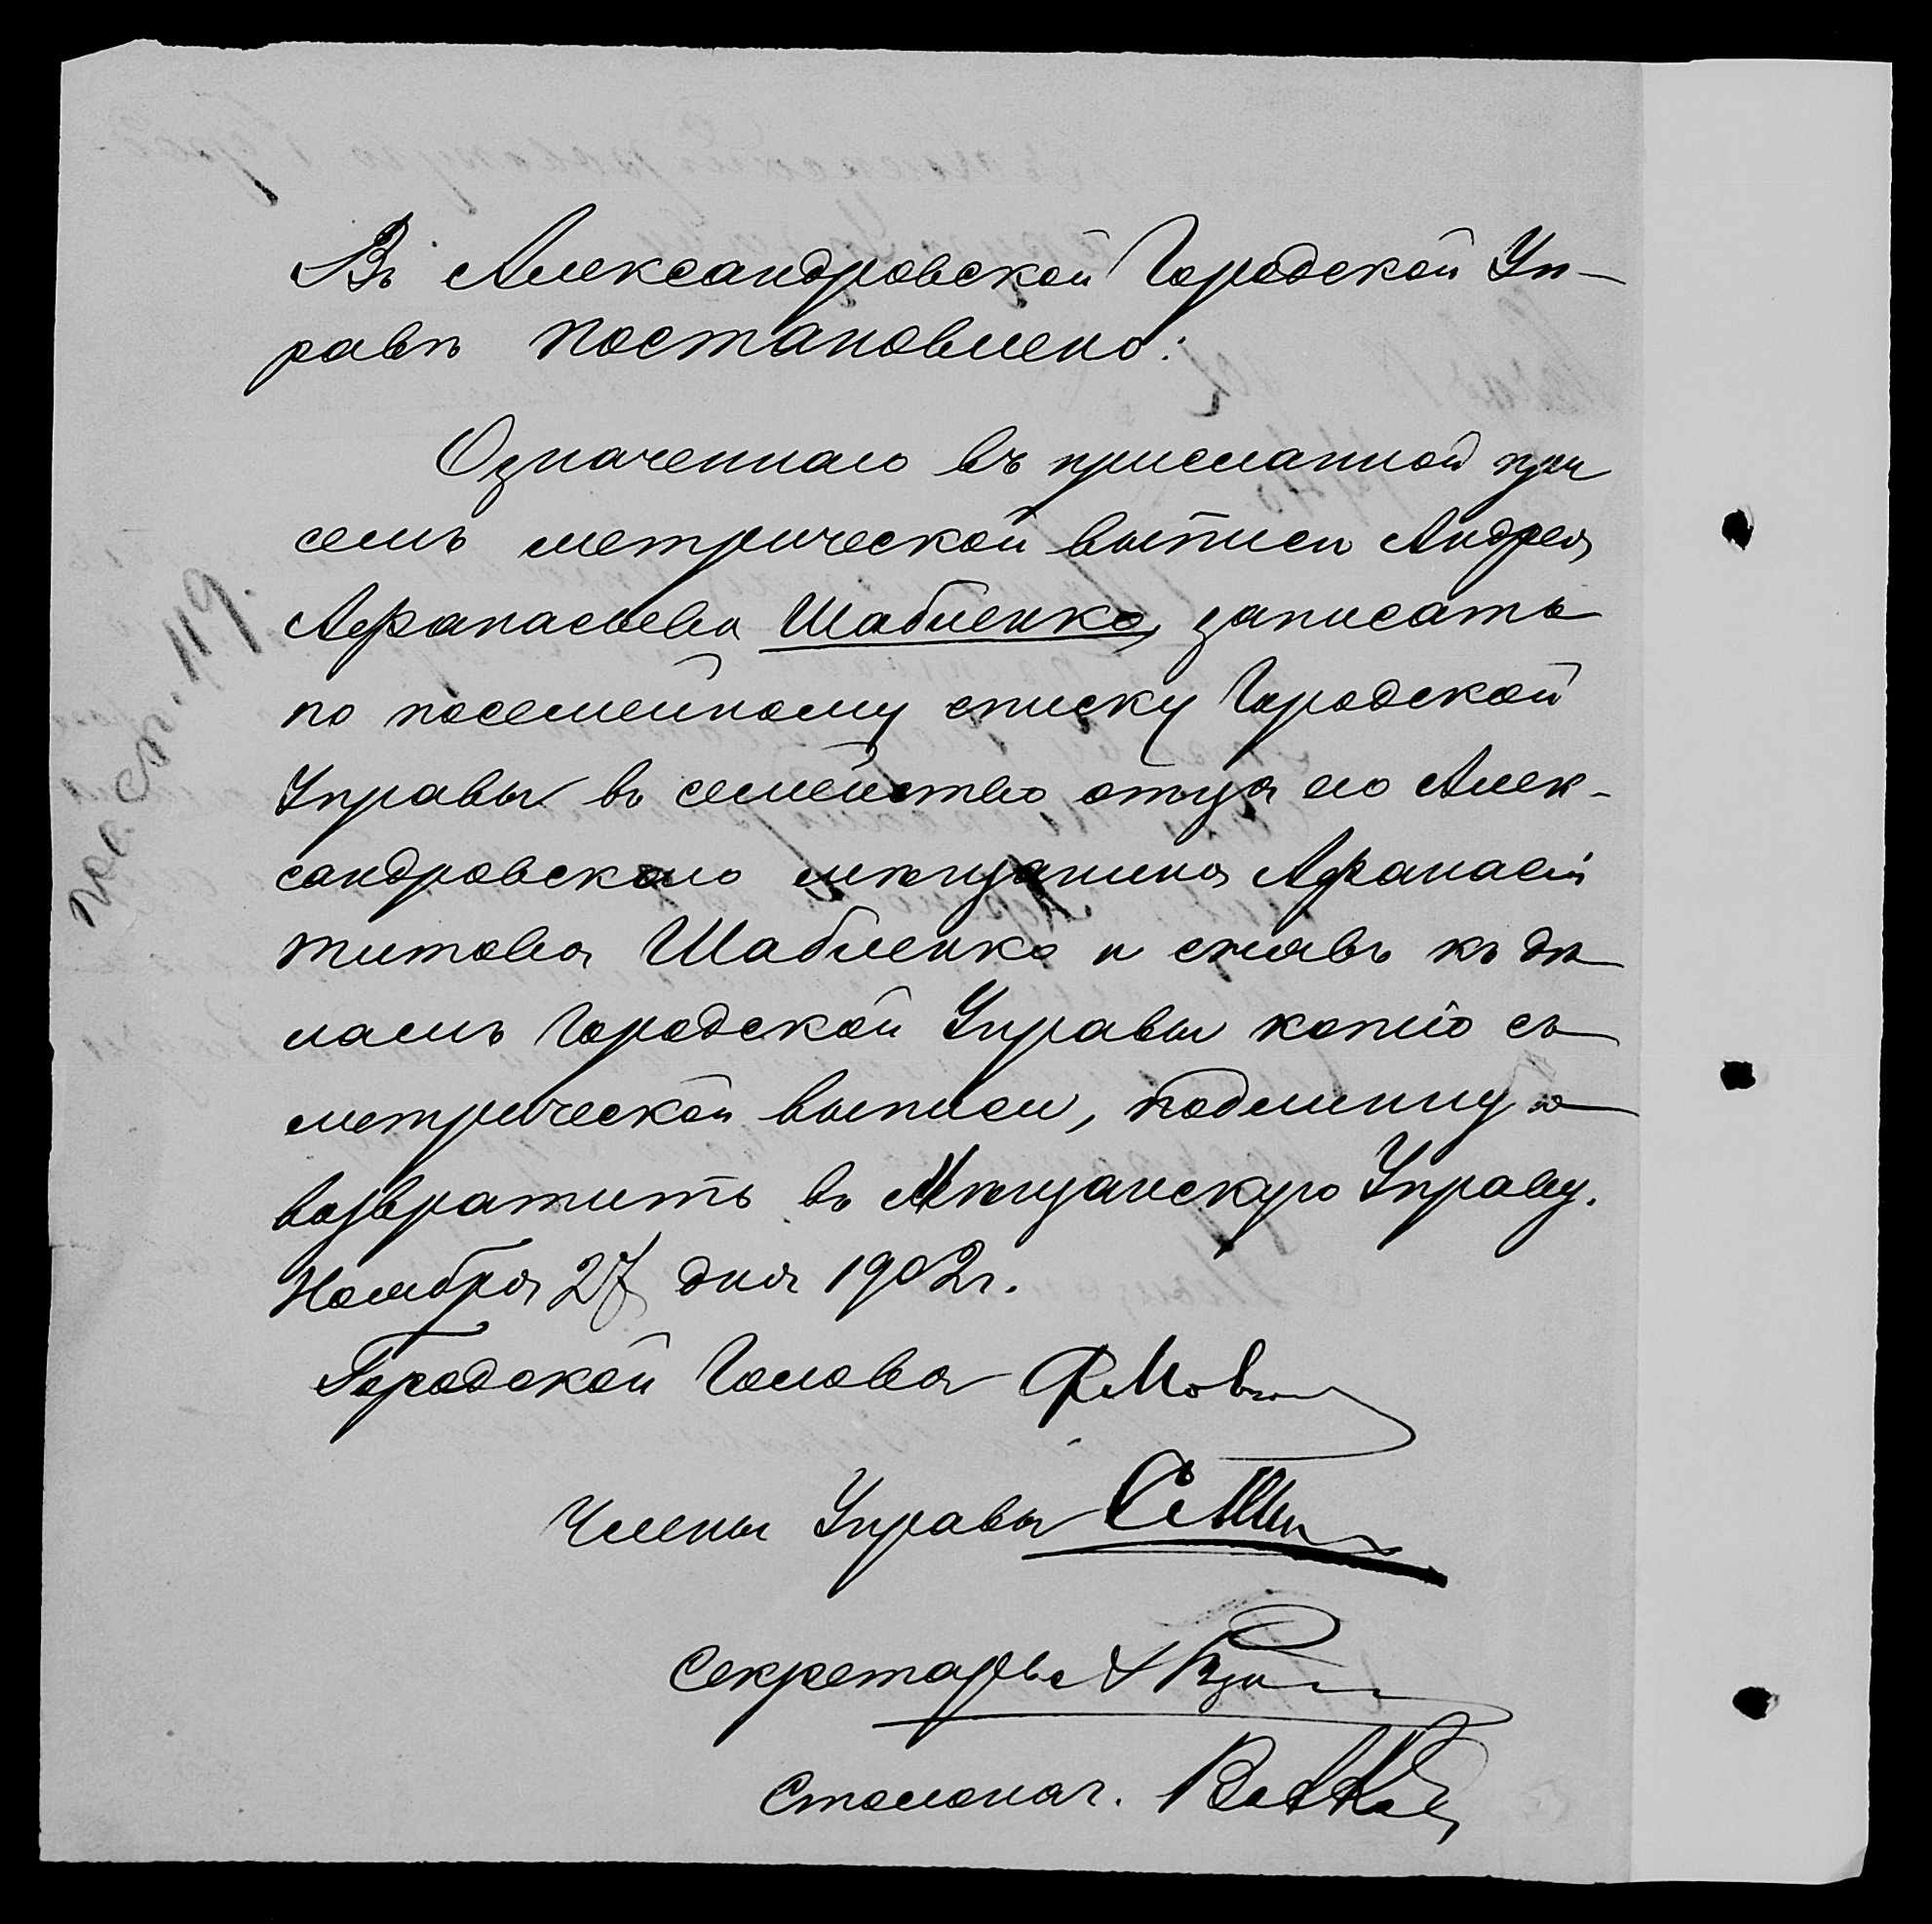 Въ Александровской Городской Уп-
равѣ постановлено:
Означеннаго въ присланной при
семъ метрической выписи Андрея
Афанасьева Шабленко, записать
по посемейному списку Городской
Управы въ семейство отца его Алек-
сандровскаго мѣщанина Афанасія
Титова Шабленко и снявъ къ дѣ
ламъ Городской Управы копію съ
метрической выписи, подлинную
возвратить въ Мѣщанскую Управу.
Ноября 27 дня 1902 г.
Городской Голова
Члены Управы
Секретарь
Столонач.
пос. сп. 119.